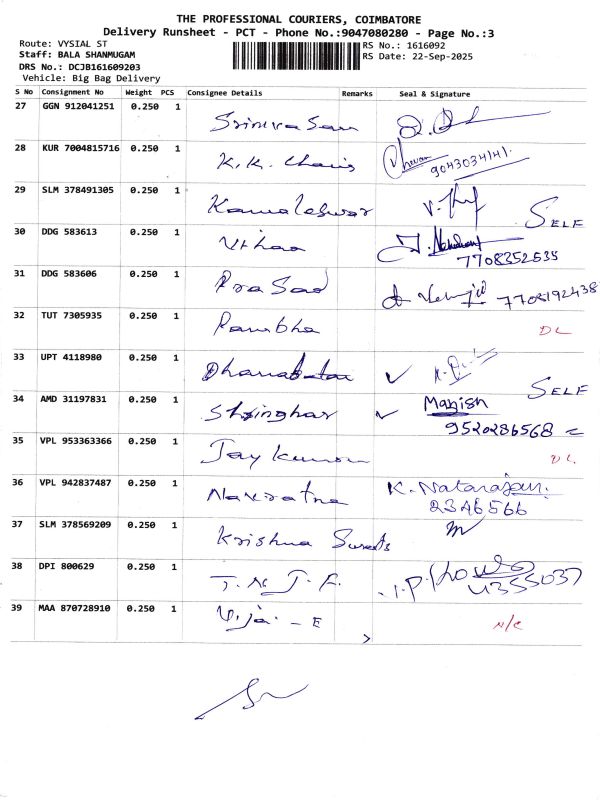 THE PROFESSIONAL COURIERS, COIMBATORE
Delivery Runsheet - PCT - Phone No.:9047080280 - Page No.:3
Route: VYSIAL ST
RS No.: 1616092
Staff: BALA SHANMUGAM
RS Date: 22-Sep-2025
DRS No.: DCJB161609203
Vehicle: Big Bag Delivery
S No Consignment No Weight PCS Consignee Details Remarks Seal & Signature
27 GGN 912041251 0.250 1 Srinivasan
28 KUR 7004815716 0.250 1 K.K. 9043034141
29 SLM 378491305 0.250 1 Kamaleshwar SELF
30 DDG 583613 0.250 1 7708352535
31 DDG 583606 0.250 1 Prasad 7708192438
32 TUT 7305935 0.250 1 DL
33 UPT 4118980 0.250 1 ✓
34 AMD 31197831 0.250 1 ✓ Manish SELF
9520286568
35 VPL 953363366 0.250 1 Jay Kumar DL
36 VPL 942837487 0.250 1 Navratna K. Natarajan
2346566
37 SLM 378569209 0.250 1 Krishna Sweets
38 DPI 800629 0.250 1 T.N.J.F. 4355037
39 MAA 870728910 0.250 1 Vijai - E N/C